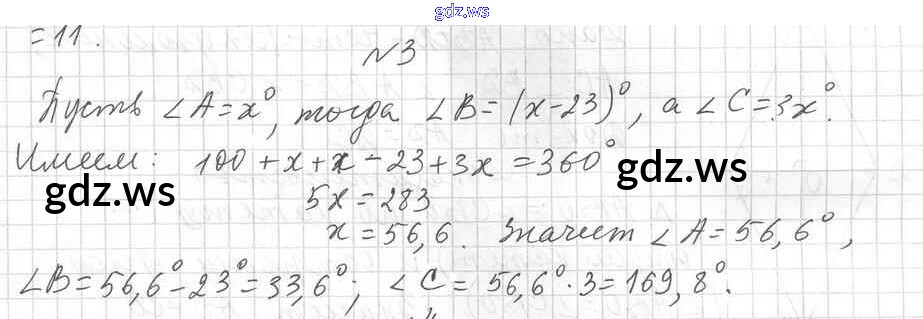 gdz.ws
= 11.
№3
Пусть ∠A = x°, тогда ∠B = (x-23)°, а ∠C = 3x°.
Имеем: 100 + x + x - 23 + 3x = 360°
gdz.ws gdz.ws
5x = 283
x = 56,6. Значит ∠A = 56,6°,
∠B = 56,6° - 23° = 33,6°; ∠C = 56,6° · 3 = 169,8°.